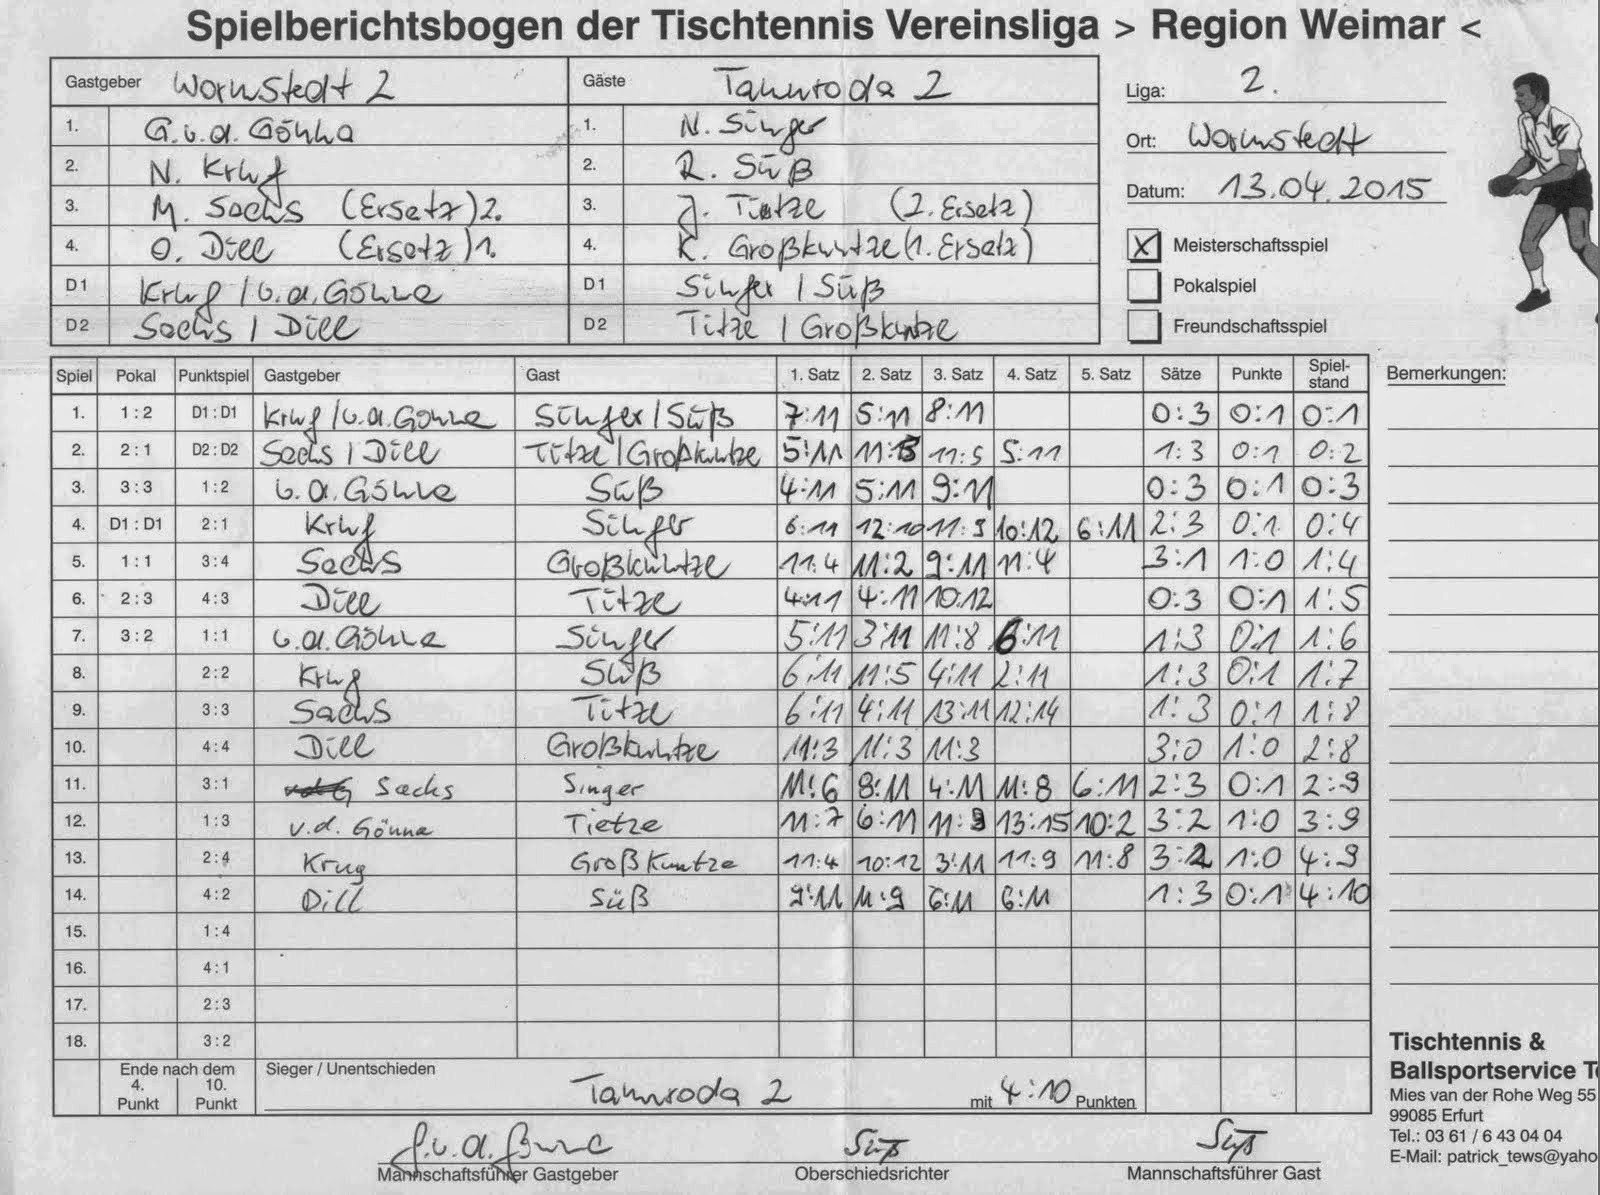 Spielberichtsbogen der Tischtennis Vereinsliga > Region Weimar <
Gastgeber Wormstedt 2 Gäste Tannroda 2
1. G. v. d. Gönna 1. N. Singer
2. N. Krug 2. R. Süß
3. M. Sachs (Ersatz) 2. 3. J. Tietze (2. Ersatz)
4. O. Dill (Ersatz) 1. 4. K. Großkuntze (1. Ersatz)
D1 Krug / v. d. Gönna D1 Singer / Süß
D2 Sachs / Dill D2 Titze / Großkuntze
Liga: 2.
Ort: Wormstedt
Datum: 13.04.2015
X Meisterschaftsspiel
Pokalspiel
Freundschaftsspiel
Spiel Pokal Punktspiel Gastgeber Gast 1. Satz 2. Satz 3. Satz 4. Satz 5. Satz Sätze Punkte Spiel-stand
1. 1:2 D1:D1 Krug / v. d. Gönna Singer / Süß 7:11 5:11 8:11 0:3 0:1 0:1
2. 2:1 D2:D2 Sachs / Dill Titze / Großkuntze 5:11 11:13 11:5 5:11 1:3 0:1 0:2
3. 3:3 1:2 v. d. Gönna Süß 4:11 5:11 9:11 0:3 0:1 0:3
4. D1:D1 2:1 Krug Singer 6:11 12:10 11:9 10:12 6:11 2:3 0:1 0:4
5. 1:1 3:4 Sachs Großkuntze 11:4 11:2 9:11 11:4 3:1 1:0 1:4
6. 2:3 4:3 Dill Titze 4:11 4:11 10:12 0:3 0:1 1:5
7. 3:2 1:1 v. d. Gönna Singer 5:11 3:11 11:8 6:11 1:3 0:1 1:6
8. 2:2 Krug Süß 6:11 11:5 4:11 2:11 1:3 0:1 1:7
9. 3:3 Sachs Titze 6:11 4:11 13:11 12:14 1:3 0:1 1:8
10. 4:4 Dill Großkuntze 11:3 11:3 11:3 3:0 1:0 2:8
11. 3:1 Sachs Singer 11:6 8:11 4:11 11:8 6:11 2:3 0:1 2:9
12. 1:3 v. d. Gönna Tietze 11:7 6:11 11:9 13:15 10:2 3:2 1:0 3:9
13. 2:4 Krug Großkuntze 11:4 10:12 3:11 11:9 11:8 3:2 1:0 4:9
14. 4:2 Dill Süß 9:11 11:9 6:11 6:11 1:3 0:1 4:10
15. 1:4
16. 4:1
17. 2:3
18. 3:2
Bemerkungen:
Ende nach dem
4. Punkt 10. Punkt
Sieger / Unentschieden
Tannroda 2 mit 4:10 Punkten
G. v. d. Gönna Süß Süß
Mannschaftsführer Gastgeber Oberschiedsrichter Mannschaftsführer Gast
Tischtennis &
Ballsportservice
Mies van der Rohe Weg 55
99085 Erfurt
Tel.: 03 61 / 6 43 04 04
E-Mail: patrick_tews@yaho